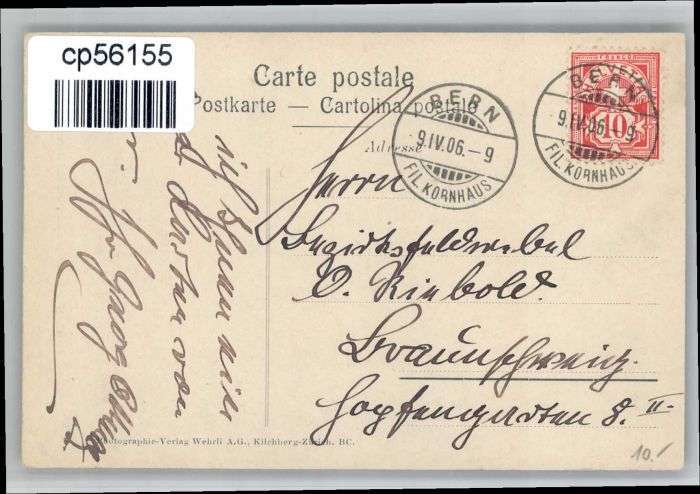 cp56155
Carte postale
Postkarte — Cartolina postale
Adresse
BERN
9.IV.06.-9
FIL. KORNHAUS
FRANCO
HELVETIA
10
BERN
9.IV.06.-9
FIL. KORNHAUS
Herrn
Bezirksfeldwebel
O. Riebold.
Braunschweig.
Hopfengarten 8. II.
Karten von
Georg
Photographie-Verlag Wehrli A.G., Kilchberg-Zürich. BC.
10.-